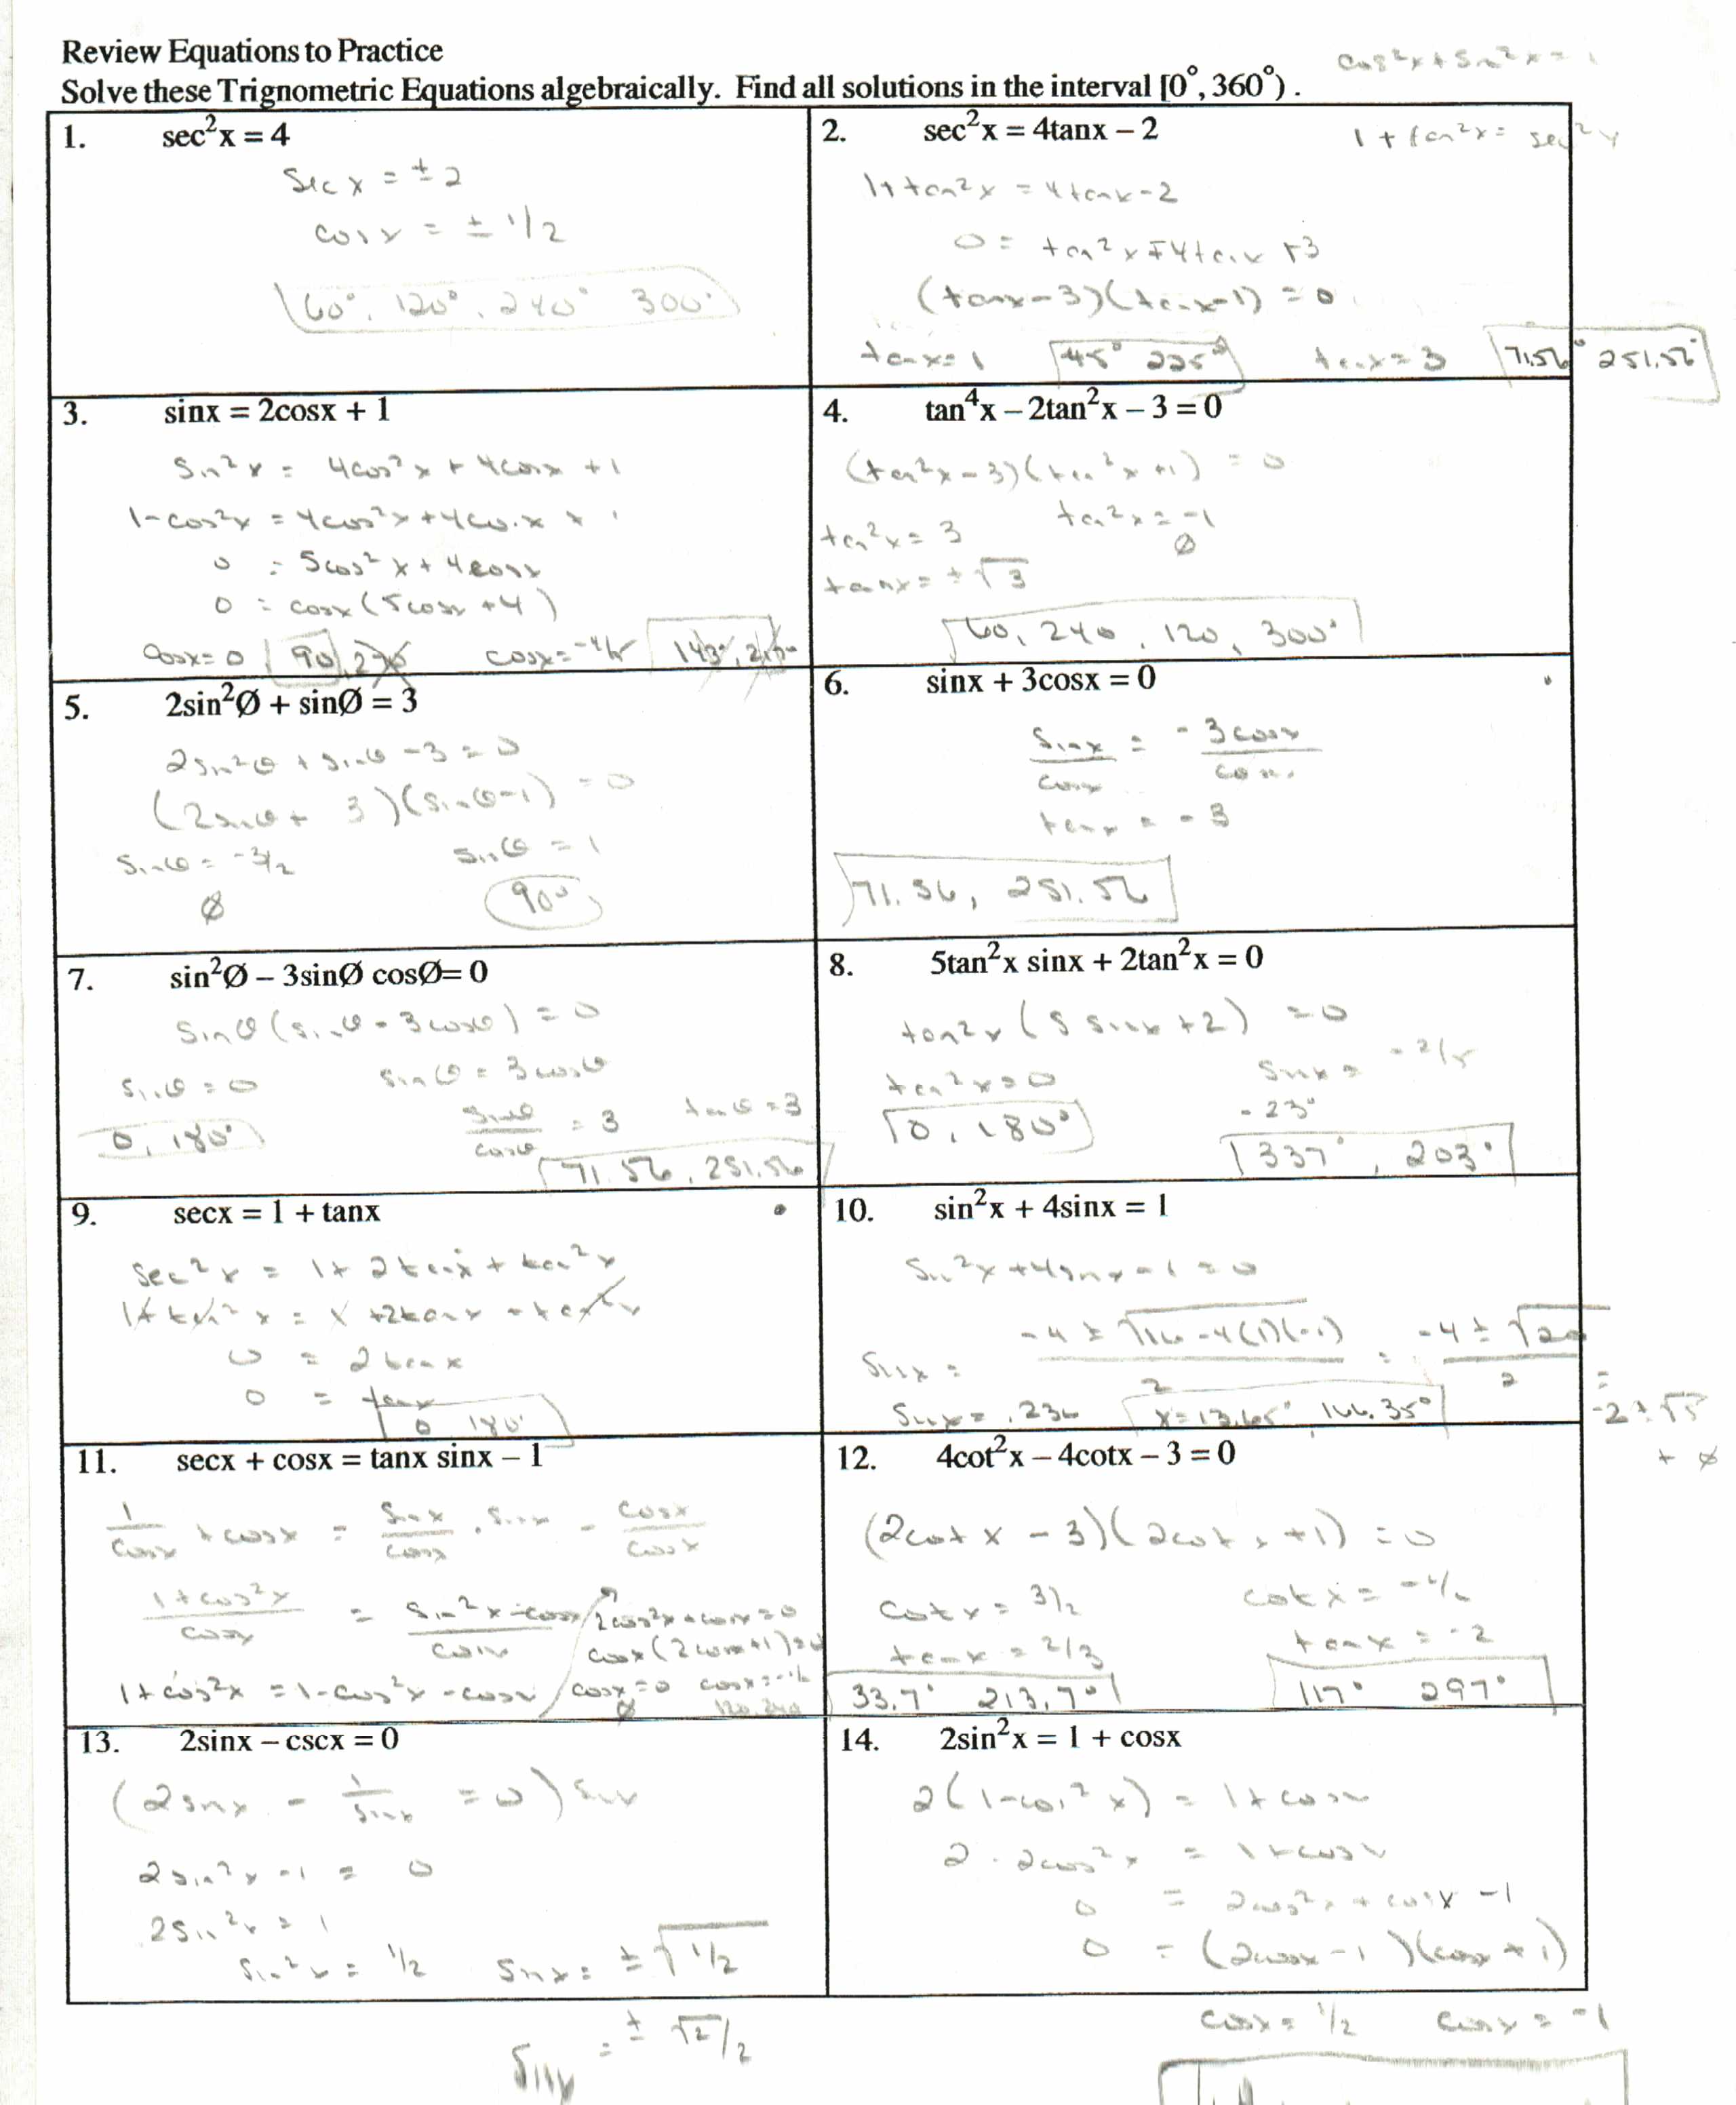 Review Equations to Practice
cos²x + sin²x = 1
Solve these Trignometric Equations algebraically. Find all solutions in the interval [0°, 360°).
1. sec²x = 4
sec x = ± 2
cosx = ± 1/2
60°, 120°, 240° 300°
2. sec²x = 4tanx – 2
1 + tan²x = sec²x
1 + tan²x = 4tanx - 2
0 = tan²x - 4tanx + 3
(tanx - 3)(tanx - 1) = 0
tanx = 1 45° 225° tanx = 3 71.56° 251.56°
3. sinx = 2cosx + 1
sin²x = 4cos²x + 4cosx + 1
1 - cos²x = 4cos²x + 4cosx + 1
0 = 5cos²x + 4cosx
0 = cosx(5cosx + 4)
cosx = 0 90, 270 cosx = -4/5 143°, 217°
4. tan⁴x – 2tan²x – 3 = 0
(tan²x - 3)(tan²x + 1) = 0
tan²x = 3 tan²x = -1
∅
tanx = ±√3
60, 240, 120, 300°
5. 2sin²Ø + sinØ = 3
2sin²θ + sinθ - 3 = 0
(2sinθ + 3)(sinθ - 1) = 0
sinθ = -3/2 sinθ = 1
∅ 90°
6. sinx + 3cosx = 0
sinx/cosx = -3cosx/cosx
tanx = -3
71.56, 251.56
7. sin²Ø – 3sinØ cosØ= 0
sinθ(sinθ - 3cosθ) = 0
sinθ = 0 sinθ = 3cosθ
0, 180° sinθ/cosθ = 3 tanθ = 3
71.56, 251.56
8. 5tan²x sinx + 2tan²x = 0
tan²x(5 sinx + 2) = 0
tan²x = 0 sinx = -2/5
-23°
0, 180° 337°, 203°
9. secx = 1 + tanx
sec²x = 1 + 2tanx + tan²x
1 + tan²x = 1 + 2tanx + tan²x
0 = 2tanx
0 = tanx
0 180°
10. sin²x + 4sinx = 1
sin²x + 4sinx - 1 = 0
sinx = -4 ± √16 - 4(1)(-1) / 2 = -4 ± √20 / 2 =
-2 ± √5
sinx = .236 x = 13.65° 166.35°
+ ∅
11. secx + cosx = tanx sinx – 1
1/cosx + cosx = sinx/cosx · sinx - cosx/cosx
1 + cos²x / cosx = sin²x - cosx / cosx
1 + cos²x = 1 - cos²x - cosx
2cos²x + cosx = 0
cosx(2cosx + 1) = 0
cosx = 0 cosx = -1/2
∅ 120, 240
12. 4cot²x – 4cotx – 3 = 0
(2cotx - 3)(2cotx + 1) = 0
cotx = 3/2 cotx = -1/2
tanx = 2/3 tanx = -2
33.7° 213.7° 117° 297°
13. 2sinx – cscx = 0
(2sinx - 1/sinx = 0) sinx
2sin²x - 1 = 0
2sin²x = 1
sin²x = 1/2 sinx = ±√1/2
sinx = ± √2/2
14. 2sin²x = 1 + cosx
2(1 - cos²x) = 1 + cosx
2 - 2cos²x = 1 + cosx
0 = 2cos²x + cosx - 1
0 = (2cosx - 1)(cosx + 1)
cosx = 1/2 cosx = -1